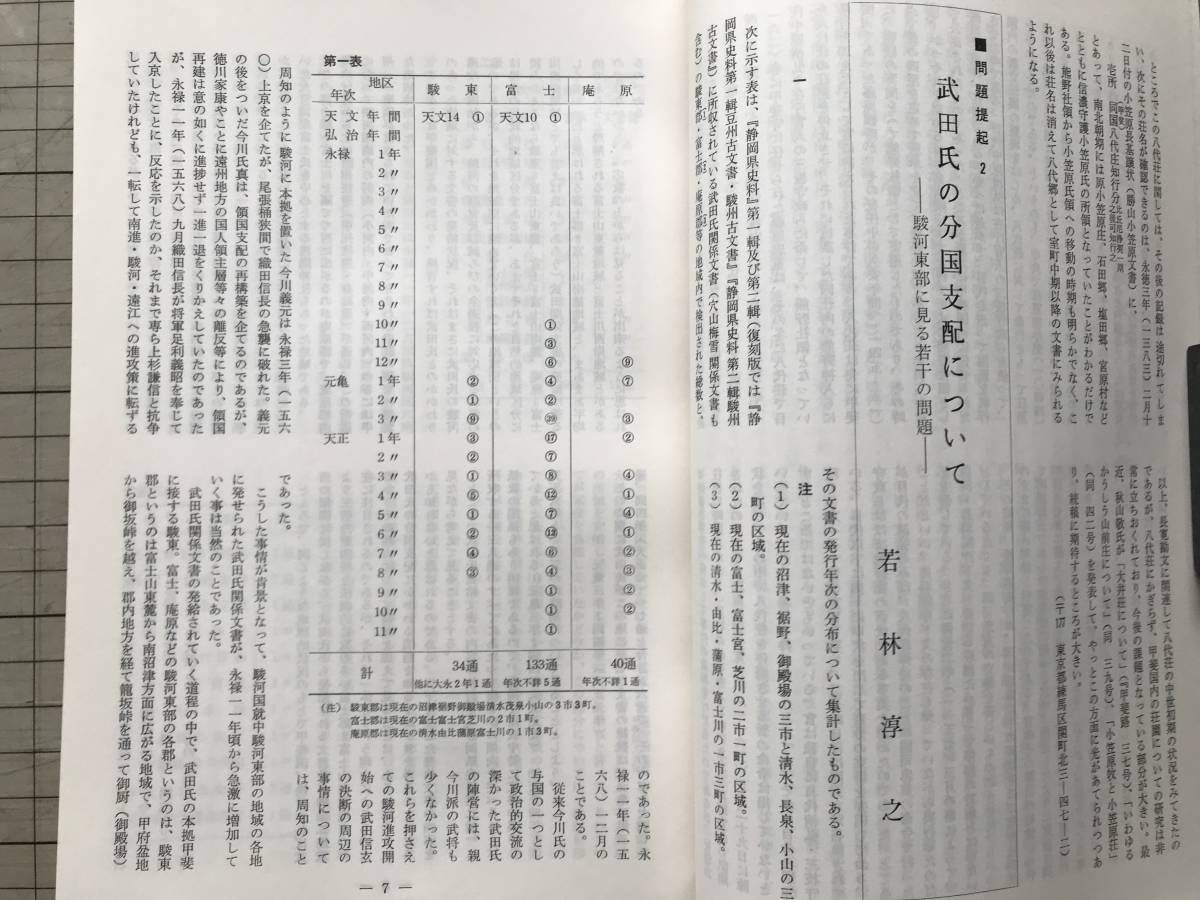 ところでこの八代荘に関しては、その後の記録は途切れてしま
い、次にその荘名が確認できるのは、永徳三年(一三八三)二月十
二日付の小笠原長基譲状(勝山小笠原文書)に、
とあって、南北朝期には原小笠原庄、石田郷、塩田郷、宮原村など
とともに信濃守護小笠原氏の所領となっていたことがわかるだけで
ある。熊野社領から小笠原氏領への移動の時期も明らかでなく、こ
れ以後は荘名は消えて八代郷として室町中期以降の文書にみられる
ようになる。
以上、長寛勘文に関連して八代荘の中世初期の状況をみてきたの
であるが、八代荘にかぎらず、甲斐国内の荘園についての研究は非
常に立ちおくれており、今後の課題となっている部分が大きい。最
近、秋山敬氏が「大井荘について」(『甲斐路 三七号)、「いわゆる
かうしう山前庄について」(同 三九号)、「小笠原牧と小笠原荘」
(同 四二号)を発表して、やっとこの方面に光があてられつつあ
り、続稿に期待するところが大きい。
(〒177 東京都練馬区関町北三―四七―二)
■問題提起 2
武田氏の分国支配について
――駿河東部に見る若干の問題――
若林淳之
一
次に示す表は、『静岡県史料』第一輯及び第二輯(復刻版では『静
岡県史料第一輯豆州古文書・駿州古文書』『静岡県史料第二輯駿州
古文書』)に所収されている武田氏関係文書(穴山梅雪関係文書も
含む)の駿東郡・富士郡・庵原郡等の地域内で検出された総数と、
その文書の発行年次の分布について集計したものである。
注
(1) 現在の沼津、裾野、御殿場の三市と清水、長泉、小山の三
町の区域。
(2) 現在の富士、富士宮、芝川の二市一町の区域。
(3) 現在の清水・由比・蒲原・富士川の一市三町の区域。
第一表
年次 地区 駿東 富士 庵原
天文年間 天文14 ① 天文10 ①
弘治年間
永禄 1年
2〃
3〃
4〃
5〃
6〃
7〃
8〃
9〃
10〃 ①
11〃 ③
12〃 ⑥ ⑨
元亀 1年 ② ④ ⑦
2〃 ① ②
3〃 ⑨ ㊴ ③
天正 1年 ③ ⑰ ②
2〃 ② ⑦
3〃 ① ⑧ ④
4〃 ⑤ ⑫ ①
5〃 ① ⑦ ④
6〃 ② ⑬ ①
7〃 ④ ⑥ ②
8〃 ③ ④ ③
9〃 ① ②
10〃 ① ②
11〃 ①
計 34通 133通 40通
他に大永2年1通 年次不詳5通 年次不詳1通
(注) 駿東郡は現在の沼津裾野御殿場清水茂泉小山の3市3町。
富士郡は現在の富士富士宮芝川の2市1町。
庵原郡は現在の清水由比蒲原富士川の1市3町。
周知のように駿河に本拠を置いた今川義元は永禄三年(一五六
〇)上京を企てたが、尾張桶狭間で織田信長の急襲に破れた。義元
の後をついだ今川氏真は、領国支配の再構築を企てるのであるが、
徳川家康やことに遠州地方の国人領主層等々の離反等により、領国
再建は意の如くに進捗せず一進一退をくりかえしていたのであった
が、永禄一一年(一五六八)九月織田信長が将軍足利義昭を奉じて
入京したことに、反応を示したのか、それまで専ら上杉謙信と抗争
していたけれども、一転して南進・駿河・遠江への進攻策に転ずる
のであった。永
禄一一年(一五
六八)一二月の
ことである。
従来今川氏の
与国の一つとし
て政治的交流の
深かった武田氏
の陣営には、親
今川派の武将も
少くなかった。
これらを押さえ
ての駿河進攻開
始への武田信玄
の決断の周辺の
事情について
は、周知のこと
であった。
こうした事情が背景となって、駿河国就中駿河東部の地域の各地
に発せられた武田氏関係文書が、永禄一一年頃から急激に増加して
いく事は当然のことであった。
武田氏関係文書の発給されていく道程の中で、武田氏の本拠甲斐
に接する駿東。富士、庵原などの駿河東部の各郡というのは、駿東
郡というのは富士山東麓から南沼津方面に広がる地域で、甲府盆地
から御坂峠を越え、郡内地方を経て籠坂峠を通って御厨(御殿場)
― 7 ―